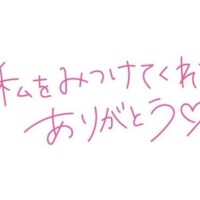 私をみつけてくれ
ありがとう♡